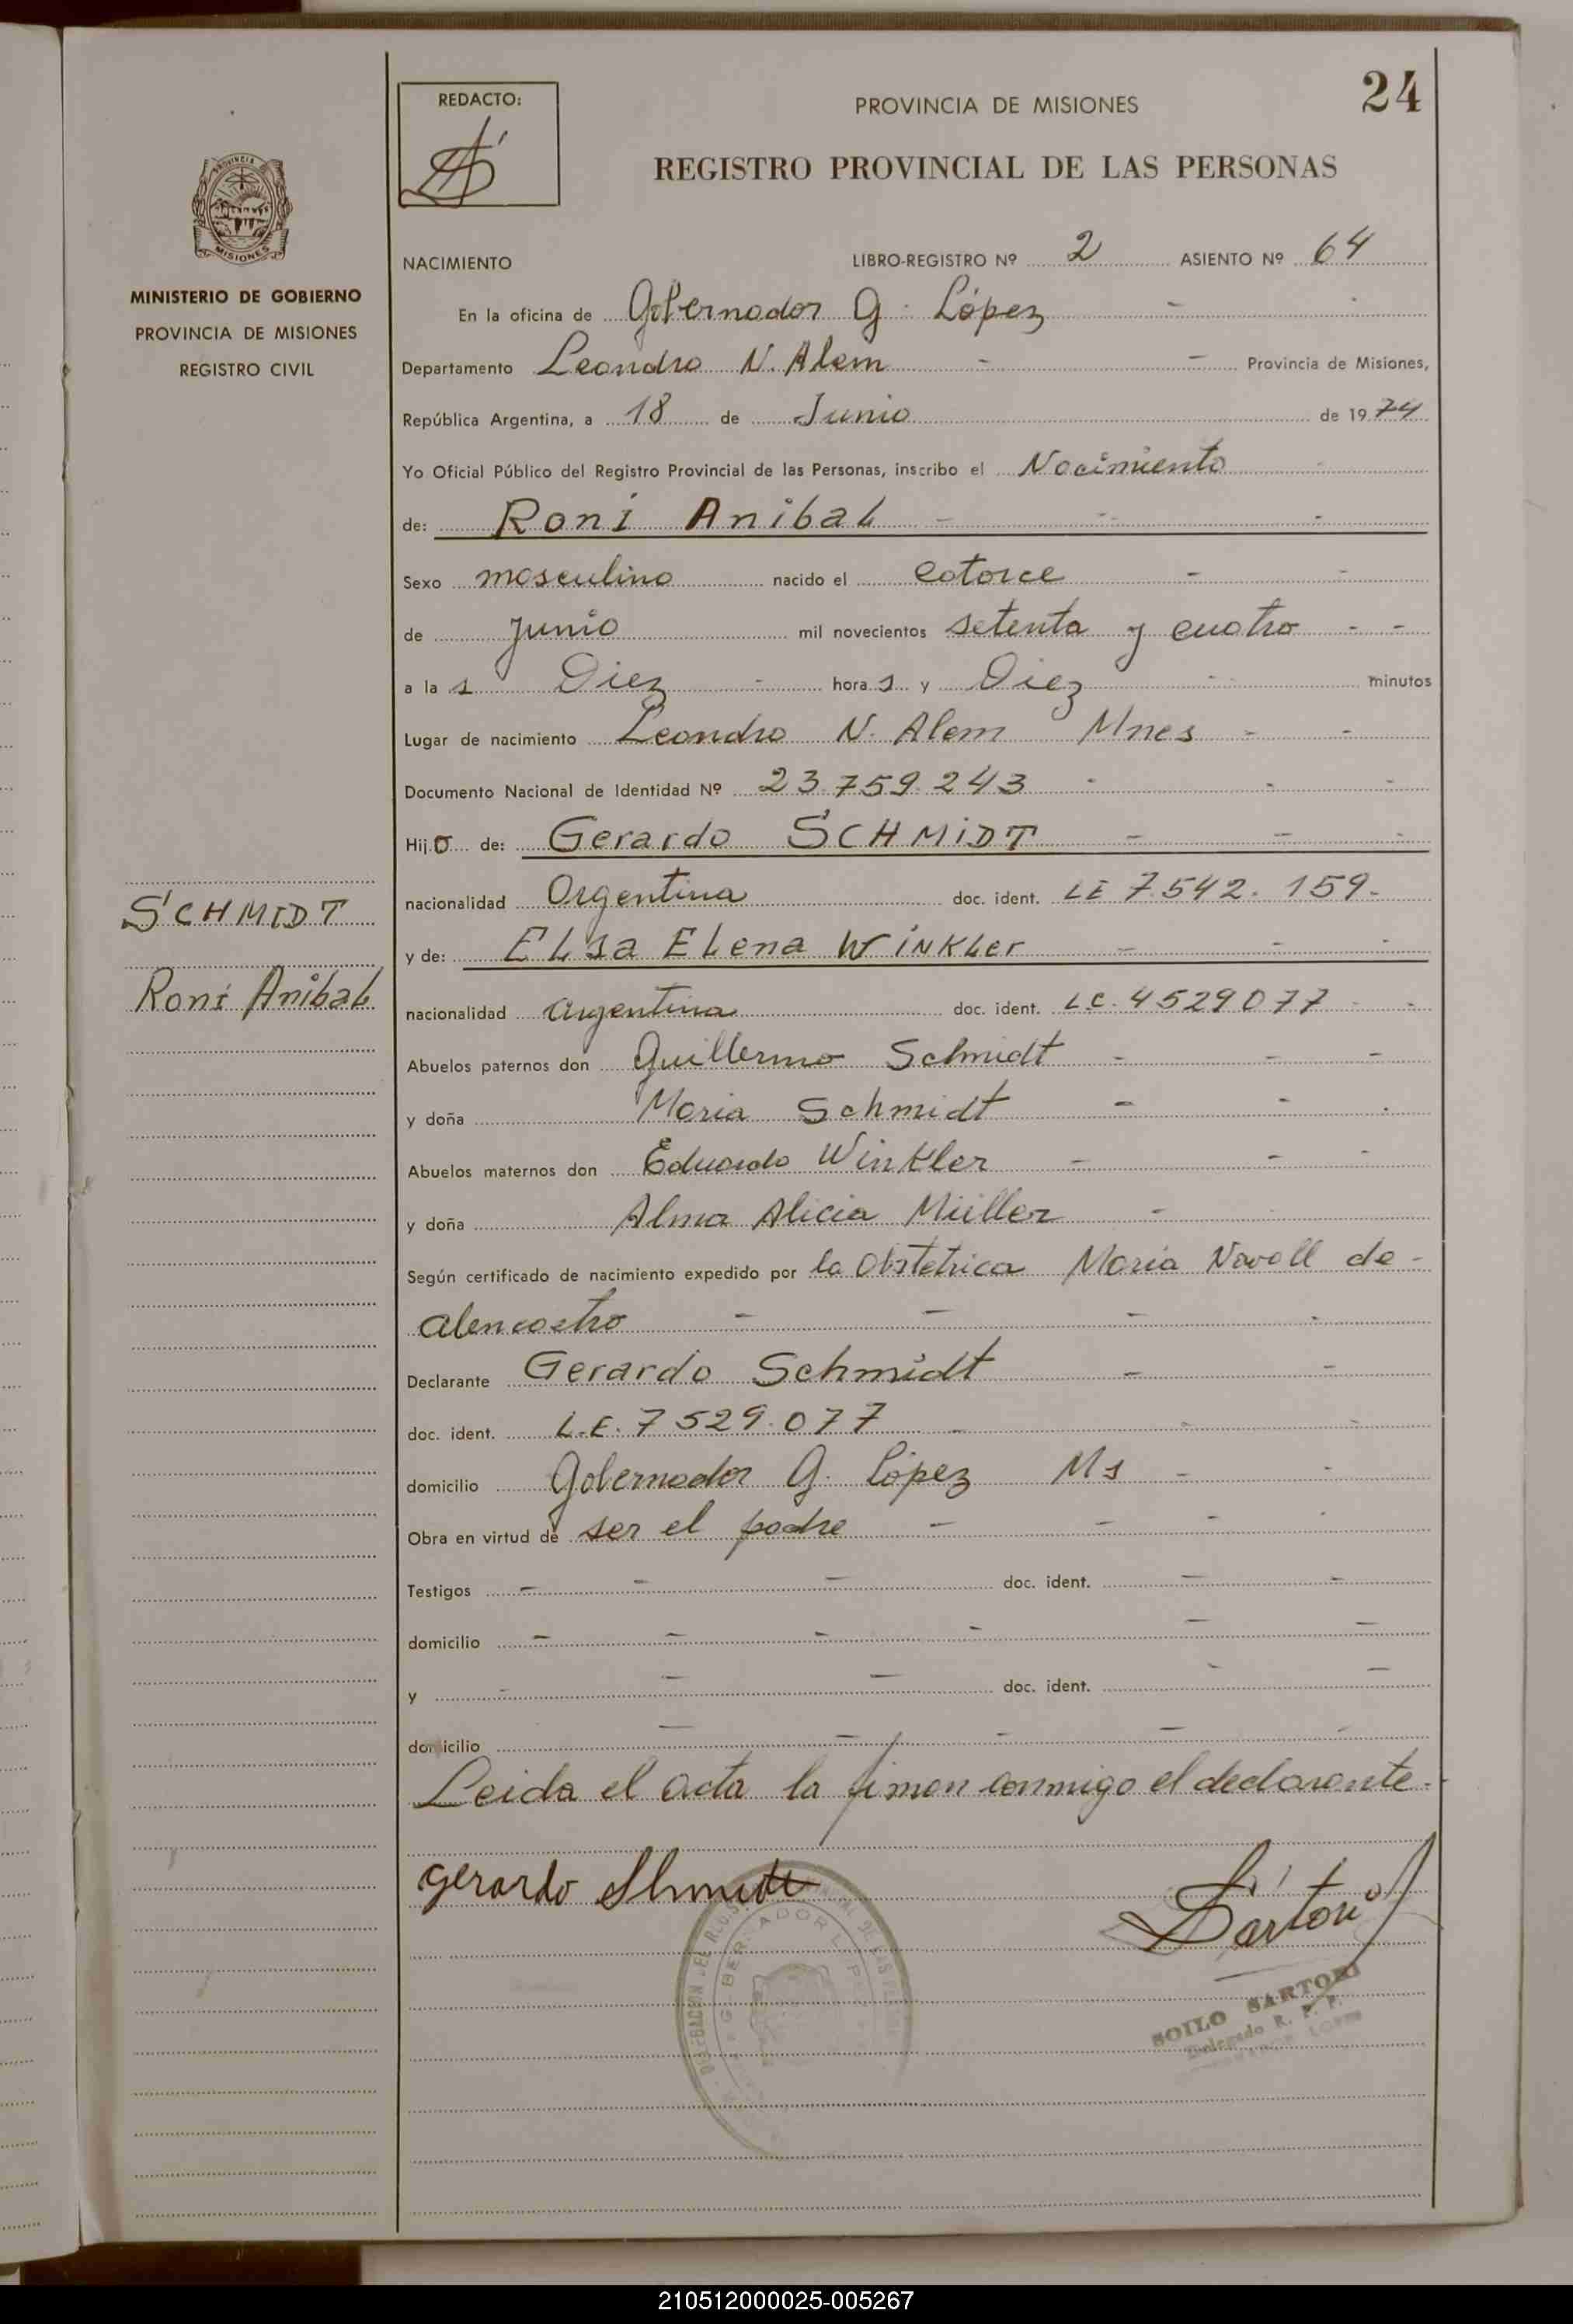 24
REDACTO:
PROVINCIA DE MISIONES
REGISTRO PROVINCIAL DE LAS PERSONAS
PROVINCIA
MISIONES
MINISTERIO DE GOBIERNO
PROVINCIA DE MISIONES
REGISTRO CIVIL
NACIMIENTO LIBRO-REGISTRO Nº 2 ASIENTO Nº 64
En la oficina de Gobernador G. López -
Departamento Leandro N. Alem - - Provincia de Misiones,
República Argentina, a 18 de Junio de 1974
Yo Oficial Público del Registro Provincial de las Personas, inscribo el Nacimiento -
de: Roni Anibal - - -
Sexo masculino nacido el catorce - -
de Junio mil novecientos setenta y cuatro - -
a las Diez - horas y Diez - minutos
Lugar de nacimiento Leandro N. Alem Mnes - -
Documento Nacional de Identidad Nº 23.759.243 - - -
Hijo de: Gerardo SCHMIDT - - -
nacionalidad Argentina doc. ident. LE 7.542.159.-
y de: Elsa Elena Winkler - - -
nacionalidad argentina doc. ident. L.C. 4529077 - -
Abuelos paternos don Guillermo Schmidt - - -
y doña Maria Schmidt - - -
Abuelos maternos don Eduardo Winkler - - -
y doña Alma Alicia Müller -
Según certificado de nacimiento expedido por la Obstetrica Maria Navall de -
alencastro - - - -
Declarante Gerardo Schmidt - -
doc. ident. L.E. 7529.077 - - -
domicilio Gobernador G. López Ms - -
Obra en virtud de ser el padre - - - -
Testigos - - - doc. ident. - -
domicilio - - - - - -
y - - - doc. ident. - -
domicilio - - - - -
Leida el acta la fiman conmigo el declarante.-
SCHMIDT
Roni Anibal
Gerardo Shmidt
Sartori
SOILO SARTORI
Delegado R. P. P.
210512000025-005267